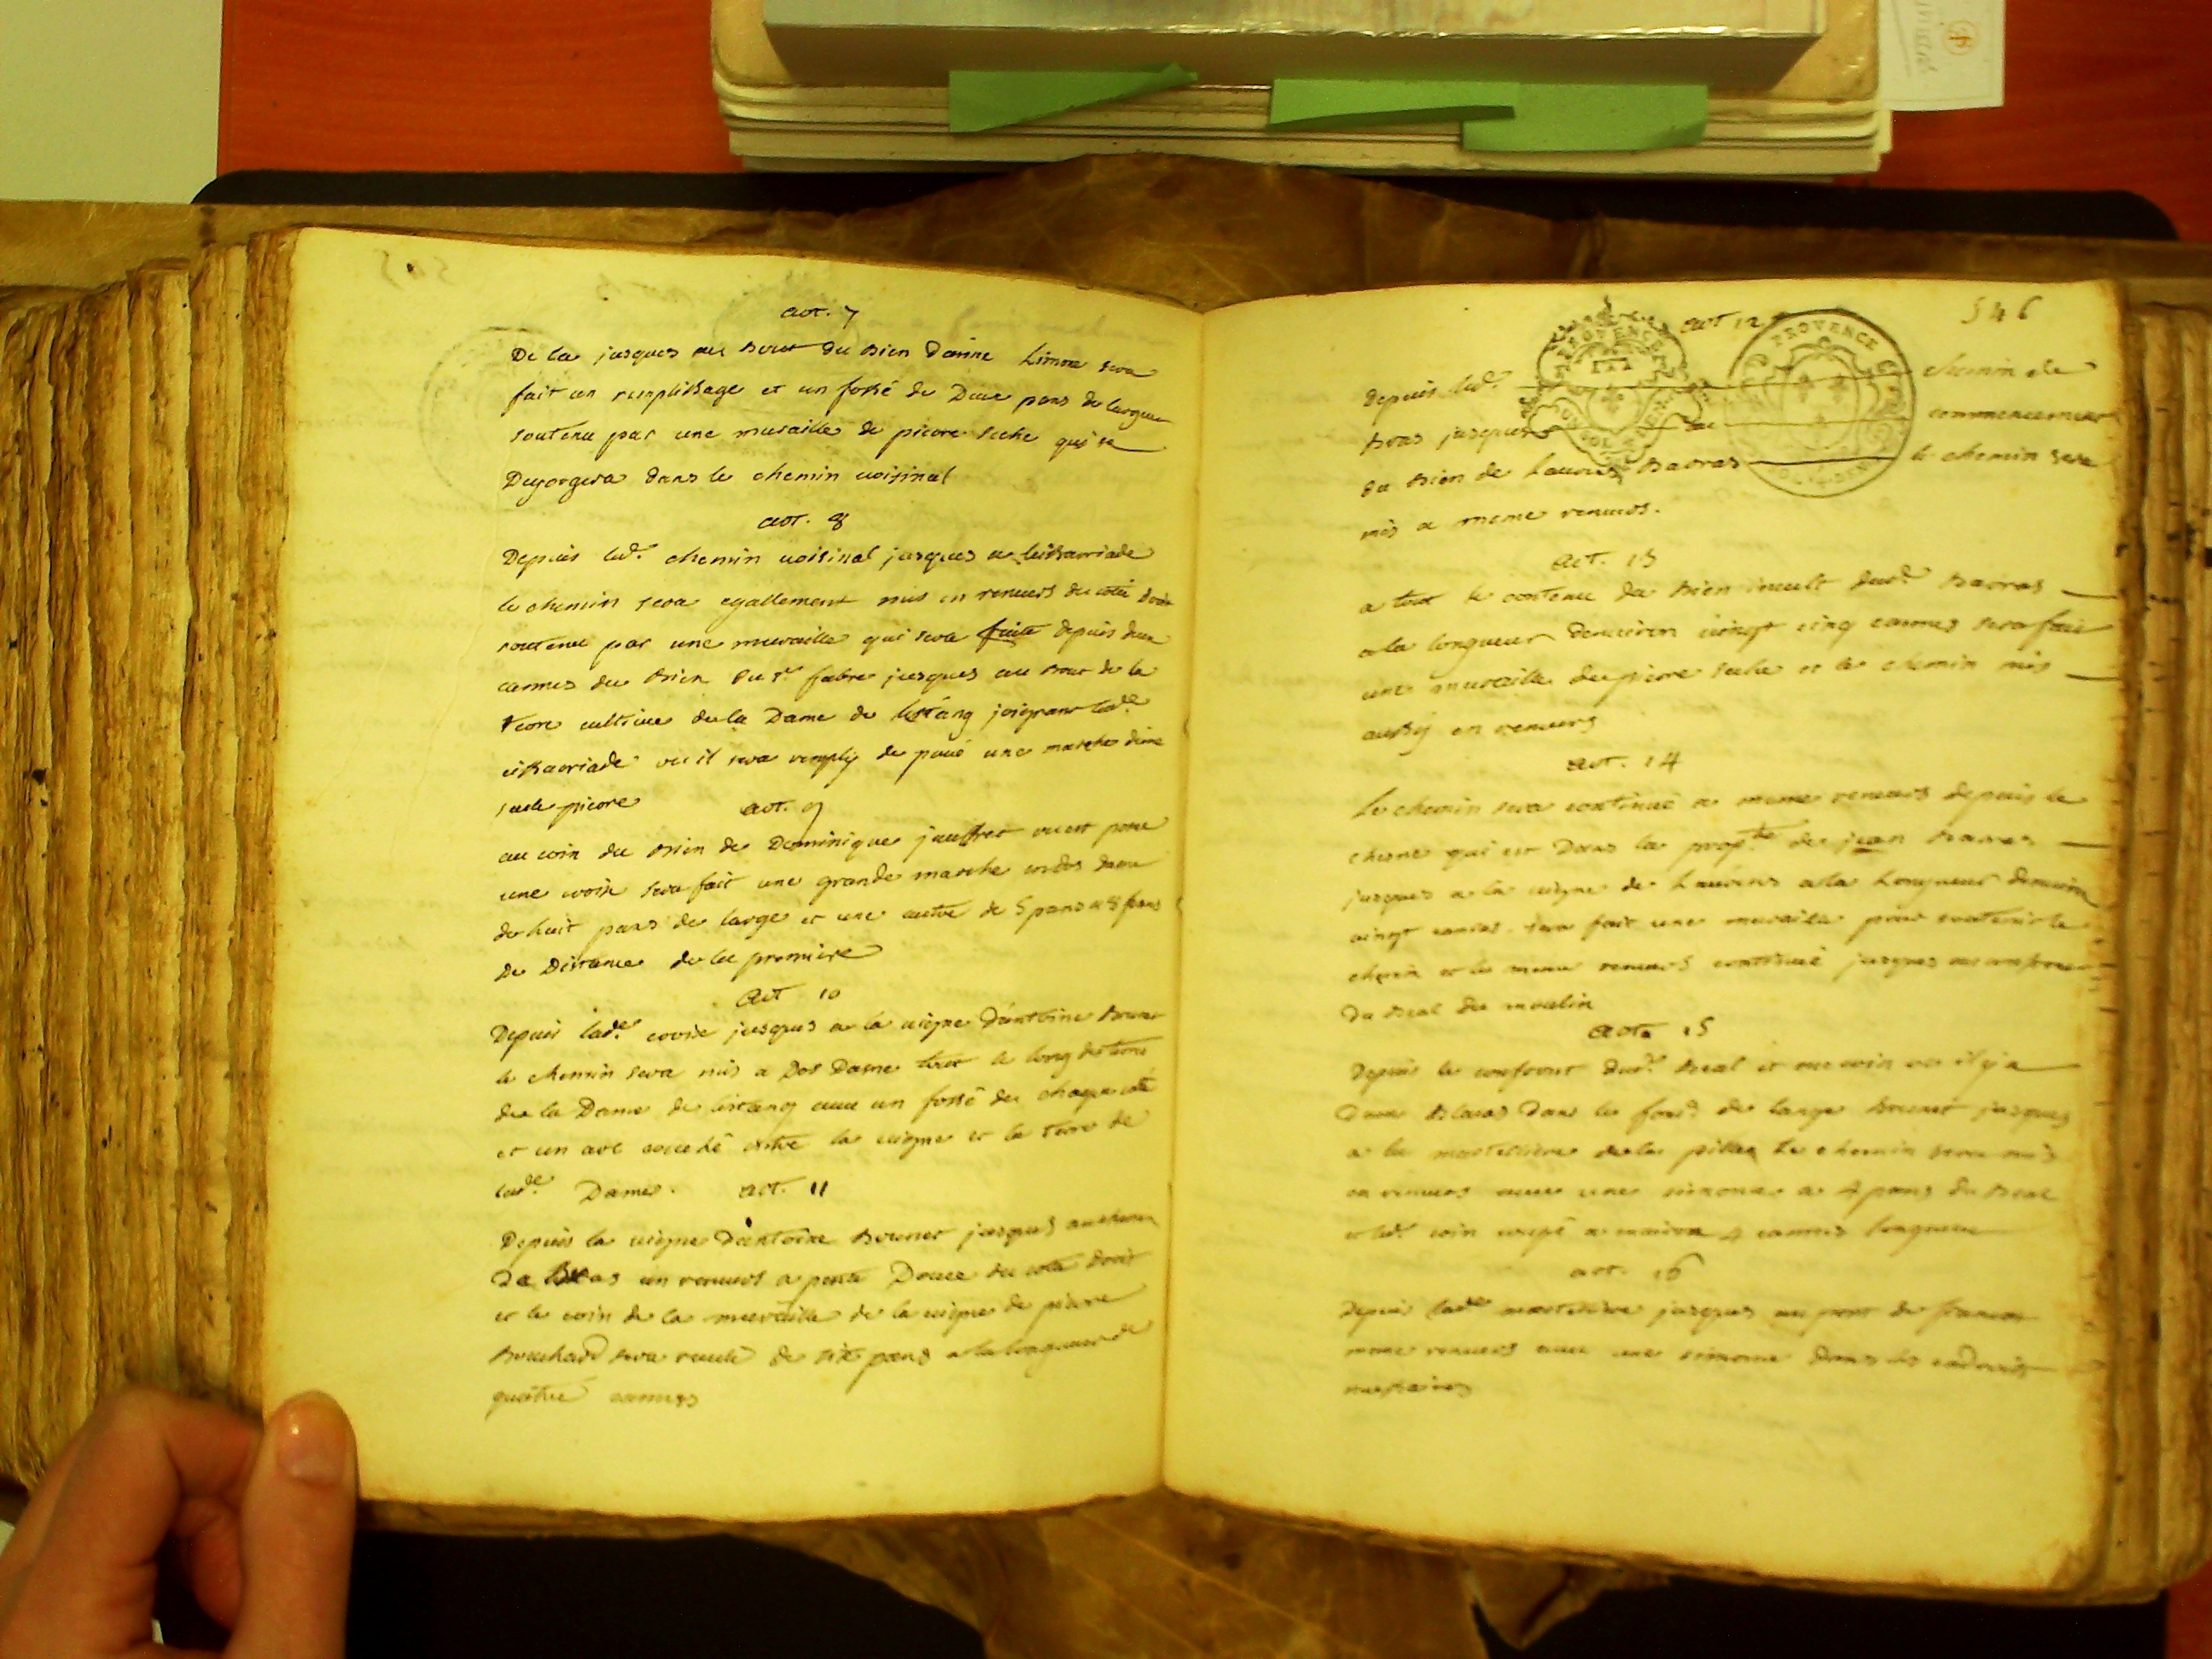 art. 7
De la jusques au bout du bien danne Limon sera
fait un remplissage et un fossé de Deux pans de largeur
soutenu par une muraille de pierre seche qui se
Degorgera dans le chemin voisinal
art. 8
Depuis lad.e chemin voisinal jusques a
le chemin sera egallement mis en renvers du coté droit
soutenu par une muraille qui sera faite depuis deux
cannes du bien du Sr fabre jusques au bout de la
terre cultive de la Dame de lestang joignant lad.e
ou il sera remply de pavé une marche dune
seule pierre
art. 9
au coin du bien de Dominique jauffret ou est posé
une croix sera fait une grande marche
de huit pans de large et une autre de 5 pans a 8 pans
De Distance de la premiere
art 10
Depuis lad.e croix jusques a la vigne D'antoine Brunet
le chemin sera mis a Dos Dasne tout le long du terre
de la Dame de lestang avec un fossé de chaque coté
et un arc entre la vigne et la terre de
lad.e Dame. art. 11
Depuis la vigne D'antoine Brunet jusques au chemin
De Bras un renvers a pente Douce du coté droit
et le coin de la muraille de la vigne de pierre
Bouchard sera reculé de six pans a la longueur de
quatre cannes
546
art 12
PROVENCE
PROVENCE
Depuis led.t chemin de
Bras jusques au commencement
du bien de Laurens Barras le chemin sera
mis a meme renvers.
art. 13
a tout le contenu du bien inculte dud.t Barras
a la longueur denviron vingt cinq cannes sera fait
une muraille de pierre seche et le chemin mis
aussy en renvers
art. 14
Le chemin sera continué a meme renvers depuis le
chesne qui est Dans la prop.te de jean Barras
jusques a la vigne de Laurens a la Longueur denviron
vingt cannes sera fait une muraille pour soutenir le
chemin et le meme renvers continué jusques au confront
du Beal du moulin
art. 15
Depuis le confront dud.t Beal et au coin ou il y a
Dans Dans le fond de Brunet jusques
a la de la le chemin sera mis
en renvers avec une a 4 pans du Beal
et led.t coin coupé a environ 4 cannes longueur
art. 16
Depuis lad.e jusques au pont de
meme renvers avec une dans les endroits
necessaires